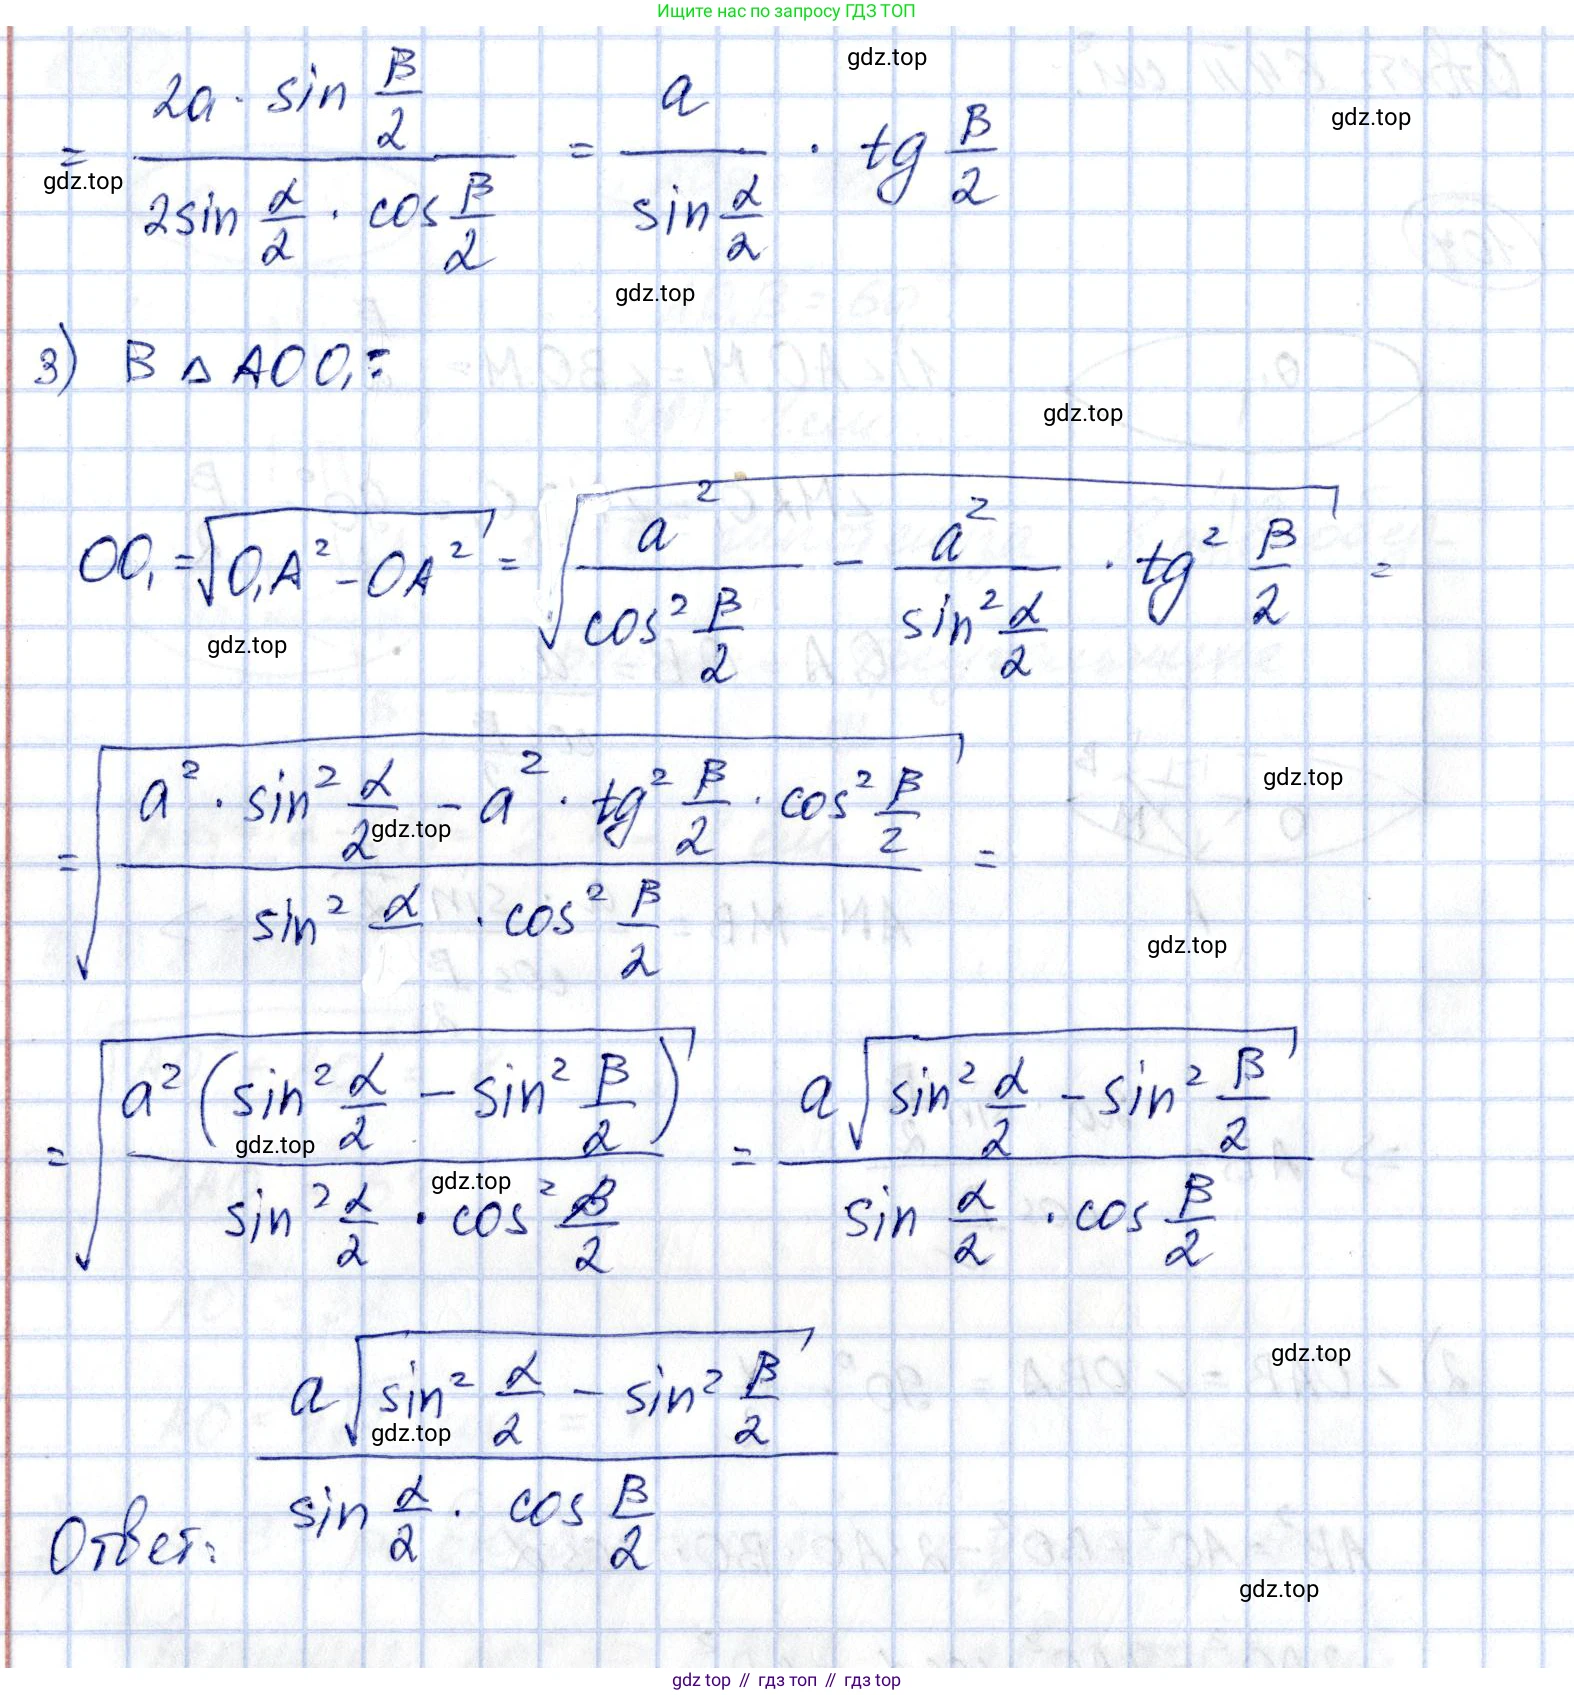 Ищите нас по запросу ГДЗ ТОП
= (2a · sin β/2) / (2sin α/2 · cos β/2) = a / (sin α/2) · tg β/2
gdz.top
gdz.top
gdz.top
gdz.top
3) В △ AOO₁:
gdz.top
OO₁ = √(O₁A² - OA²) = √(a² / (cos² β/2) - a² / (sin² α/2) · tg² β/2) =
gdz.top
= √((a² · sin² α/2 - a² · tg² β/2 · cos² β/2) / (sin² α · cos² β/2)) =
gdz.top
gdz.top
gdz.top
= √((a² (sin² α/2 - sin² β/2)) / (sin² α/2 · cos² β/2)) = (a √(sin² α/2 - sin² β/2)) / (sin α/2 · cos β/2)
gdz.top
gdz.top
Ответ: (a √(sin² α/2 - sin² β/2)) / (sin α/2 · cos β/2)
gdz.top
gdz.top
gdz.top
gdz top // гдз топ // gdz top